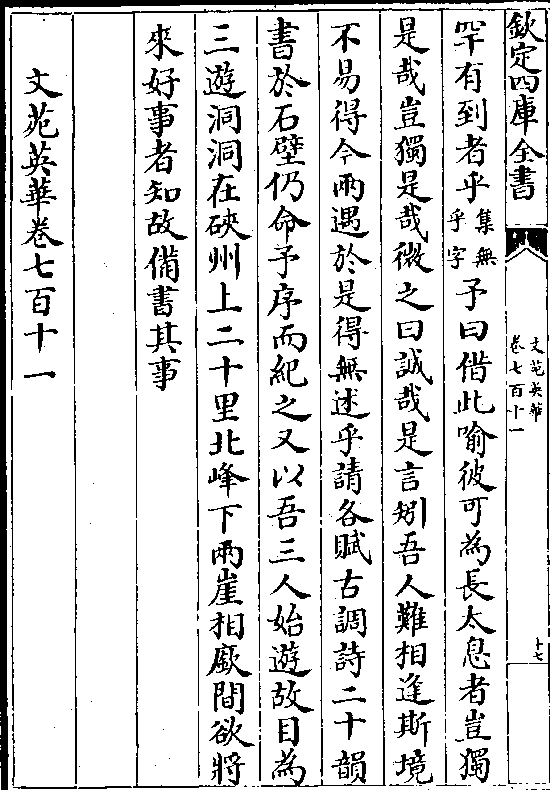 欽定四庫全書
文苑英華
卷七百十一
十七
罕有到者乎集無乎字予曰借此喻彼可為長太息者豈獨
是哉豈獨是哉微之曰誠哉是言矧吾人難相逢斯境
不易得今兩遇於是得無述乎請各賦古調詩二十韻
書於石壁仍命予序而紀之又以吾三人始遊故目為
三遊洞洞在硤州上二十里北峰下兩崖相廞間欲將
來好事者知故備書其事
文苑英華卷七百十一